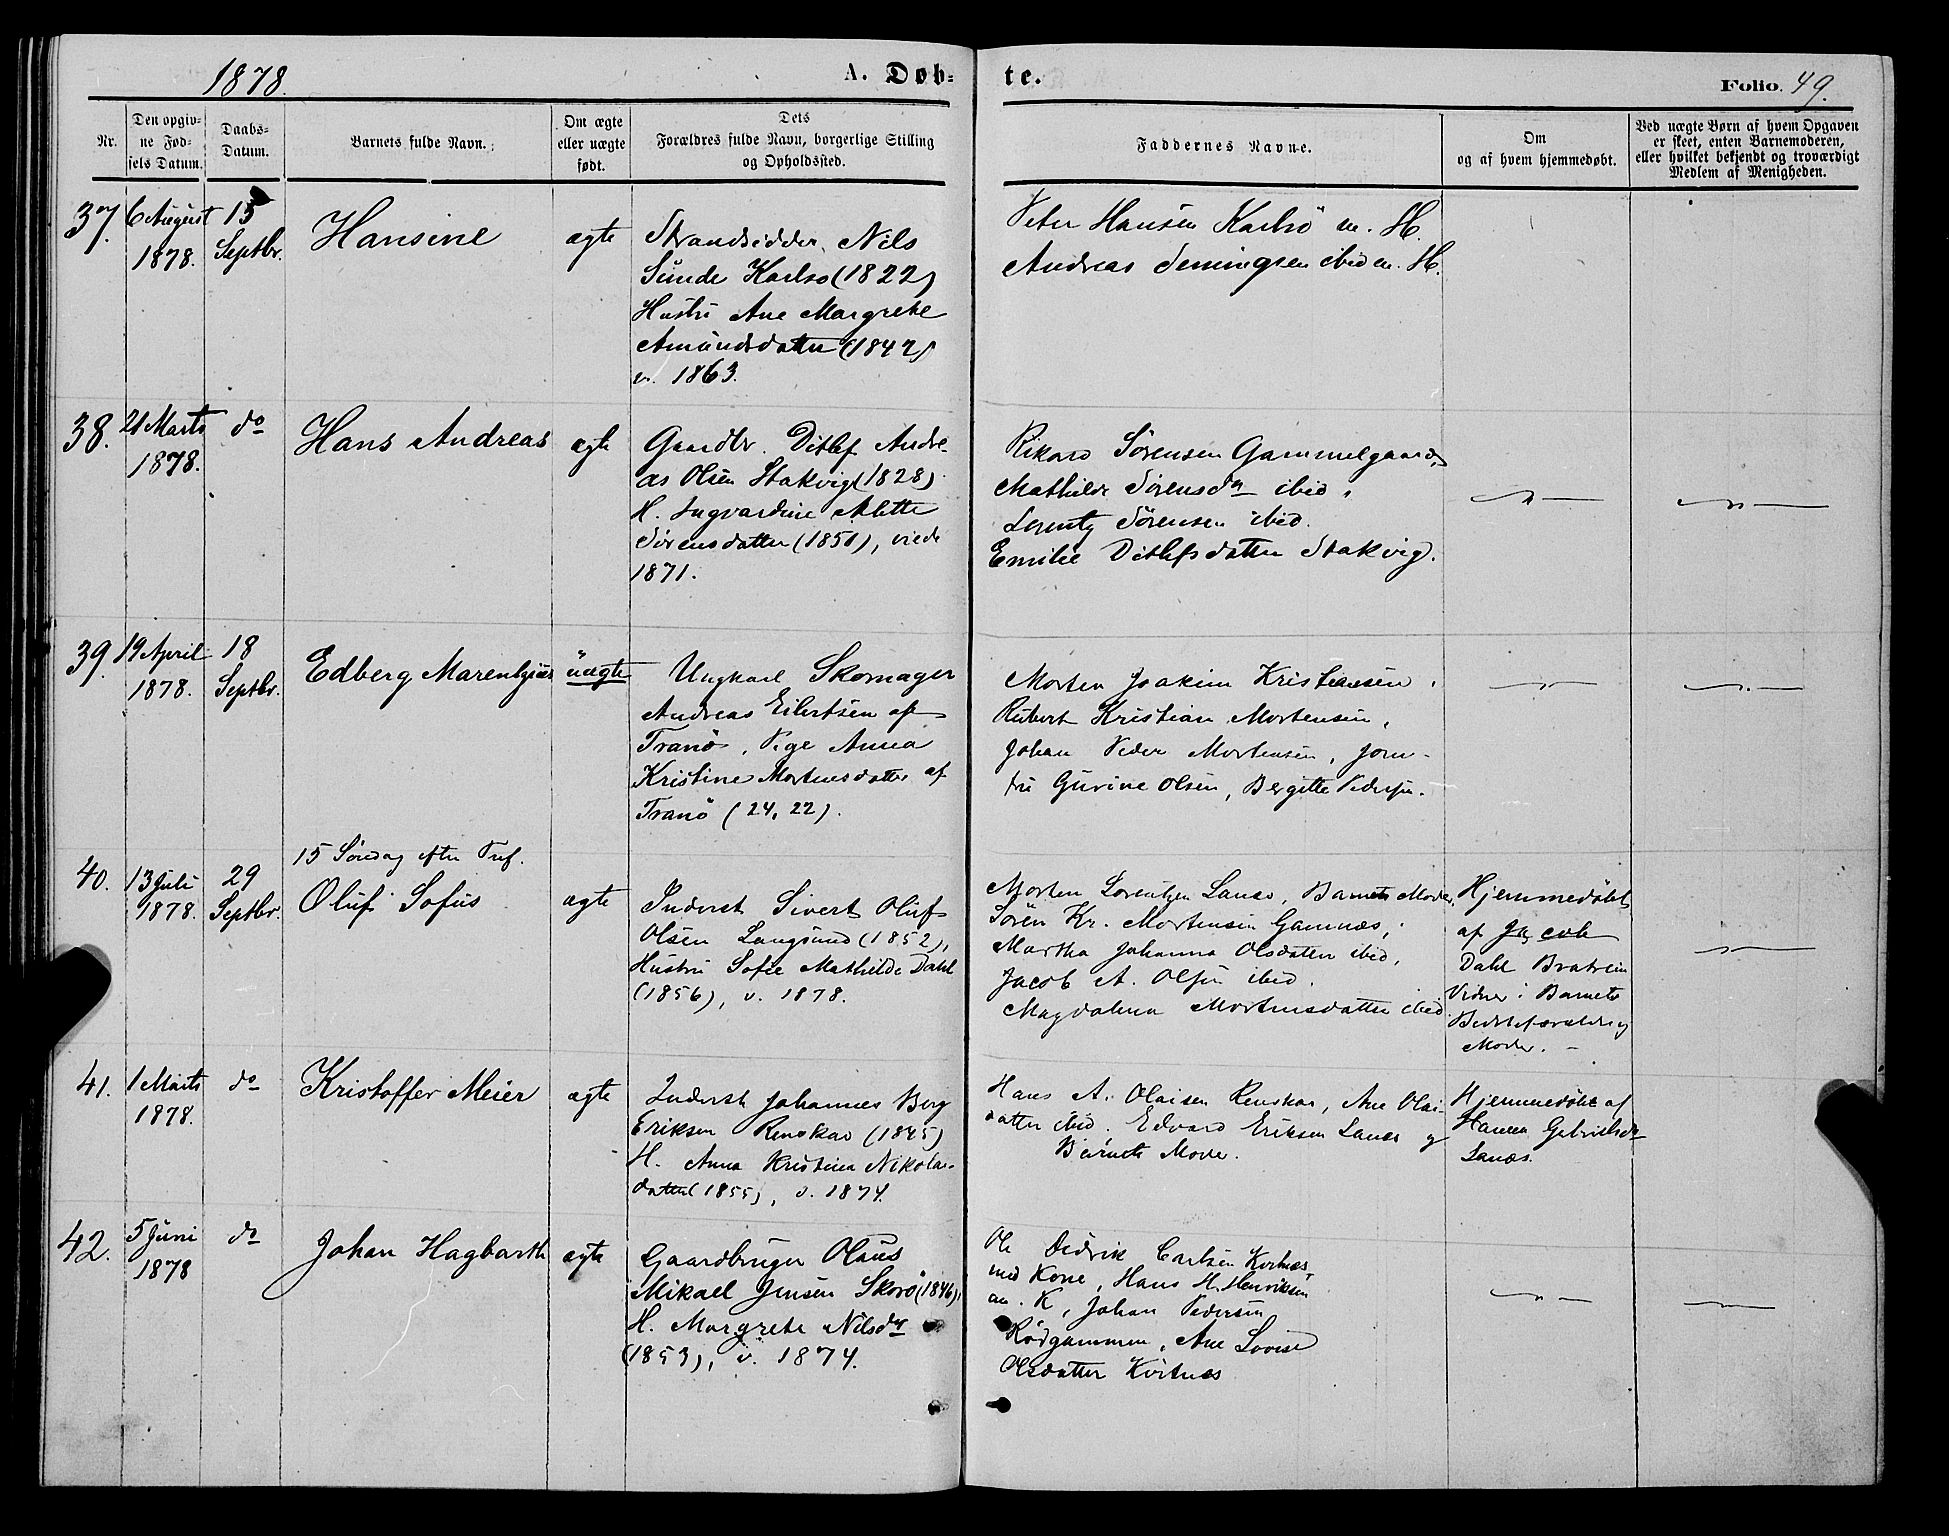 1878.
A. Døb-
te.
Folio. 49.
Nr.
Den opgiv-
ne Fød-
sels Datum.
Daabs-
Datum.
Barnets fulde Navn.
Om ægte
eller uægte
født.
Dets
Forældres fulde Navn, borgerlige Stilling
og Opholdssted.
Faddernes Navne.
Om
og af hvem hjemmedøbt.
Ved uægte Børn af hvem Opgaven
er skeet, enten Barnemoderen,
eller hvilket bekjendt og troværdigt
Medlem af Menigheden.
37.
6 August
1878.
15
Septbr.
Hansine
ægte
Strandsidder Nils
Sunde Karlsø (1822)
Hustru Ane Margrete
Amundsdatter (1842)
v. 1863.
Peter Hansen Karlsø m. H.
Andreas ibid m. H.
38.
21 Marts
1878.
do
Hans Andreas
ægte
Gaardbr. Ditlef Andre-
as Olsen Stakvig (1828)
H. Ingvardine Alette
Sørensdatter (1851), viede
1871.
Rikard Sørensen Gammelgaard,
Mathilde Sørensdr ibid,
Lorentz Sørensen ibid.
Emilie Ditlefsdatter Stakvig.
39.
19 April
1878.
18
Septbr.
Edberg Marentzius
uægte
Ungkarl Skomager
Andreas Eilertsen af
Tranø, Pige Anna
Kristine Mortensdatter af
Tranø (24, 22).
Morten Joakim Kristiansen,
Rubert Kristian Mortensen,
Johan Peder Mortensen, Jom-
fru Gurine Olsen, Bergitte Pedersen.
15 Søndag efter Tref.
40.
13 Juli
1878.
29
Septbr.
Oluf Sofus
ægte
Inderst Sivert Oluf
Olsen Langsund (1852),
Hustru Sofie Mathilde Dahl
(1856), v. 1878.
Morten Lorentzen Lanes, Barnets Moder,
Sören Kr. Mortensen Gamnæs,
Martha Johanna Olsdatter ibid,
Jacob A. Olsen ibid.
Magdalena Mortensdatter ibid
Hjemmedøbt
af Jacob
Dahl Bratrein
Vidner: Barnets
Bedsteforældre og
Moder. –
41.
1 Marts
1878.
do
Kristoffer Meier
ægte
Inderst Johannes Berg
Eriksen Renskar (1845)
H. Anna Kristina Nikolai-
datter (1855), v. 1874.
Hans A. Olaisen Renskar, Ane Olai-
datter ibid. Edvard Eriksen Lanes og
Barnets Moder.
Hjemmedøbt af
Hanna Gabrielsdr
Lanæs.
42.
5 Juni
1878
do
Johan Hagbarth
ægte
Gaardbruger Olaus
Mikael Jensen Skorø (1846),
H. Margrete Nilsdr
(1853), v. 1874.
Ole Didrik Carlsen Kvitnæs
med Kone, Hans H. Henriksen
m. K, Johan Pedersen
Rødgammen, Ane Lovise
Olsdatter Kvitnæs